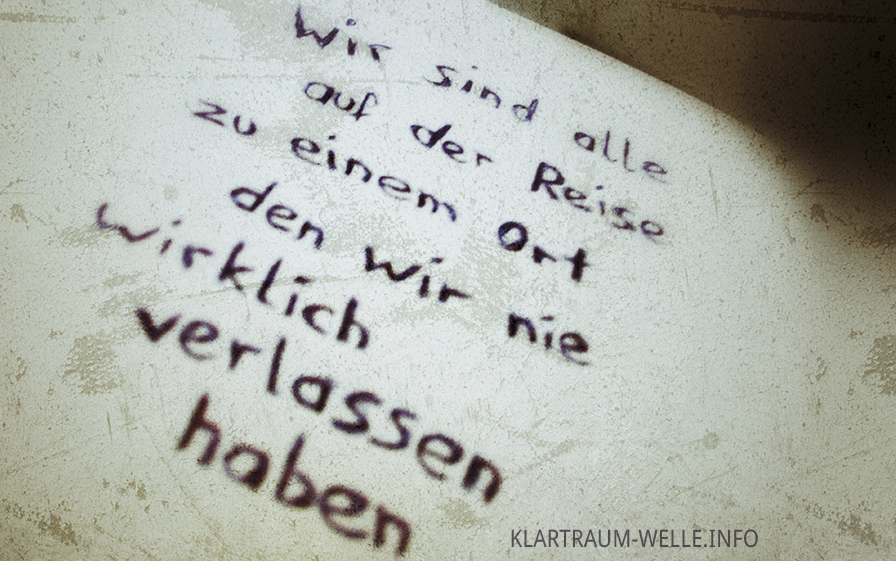 Wir sind alle
auf der Reise
zu einem Ort
den wir nie
wirklich
verlassen
haben
KLARTRAUM-WELLE.INFO